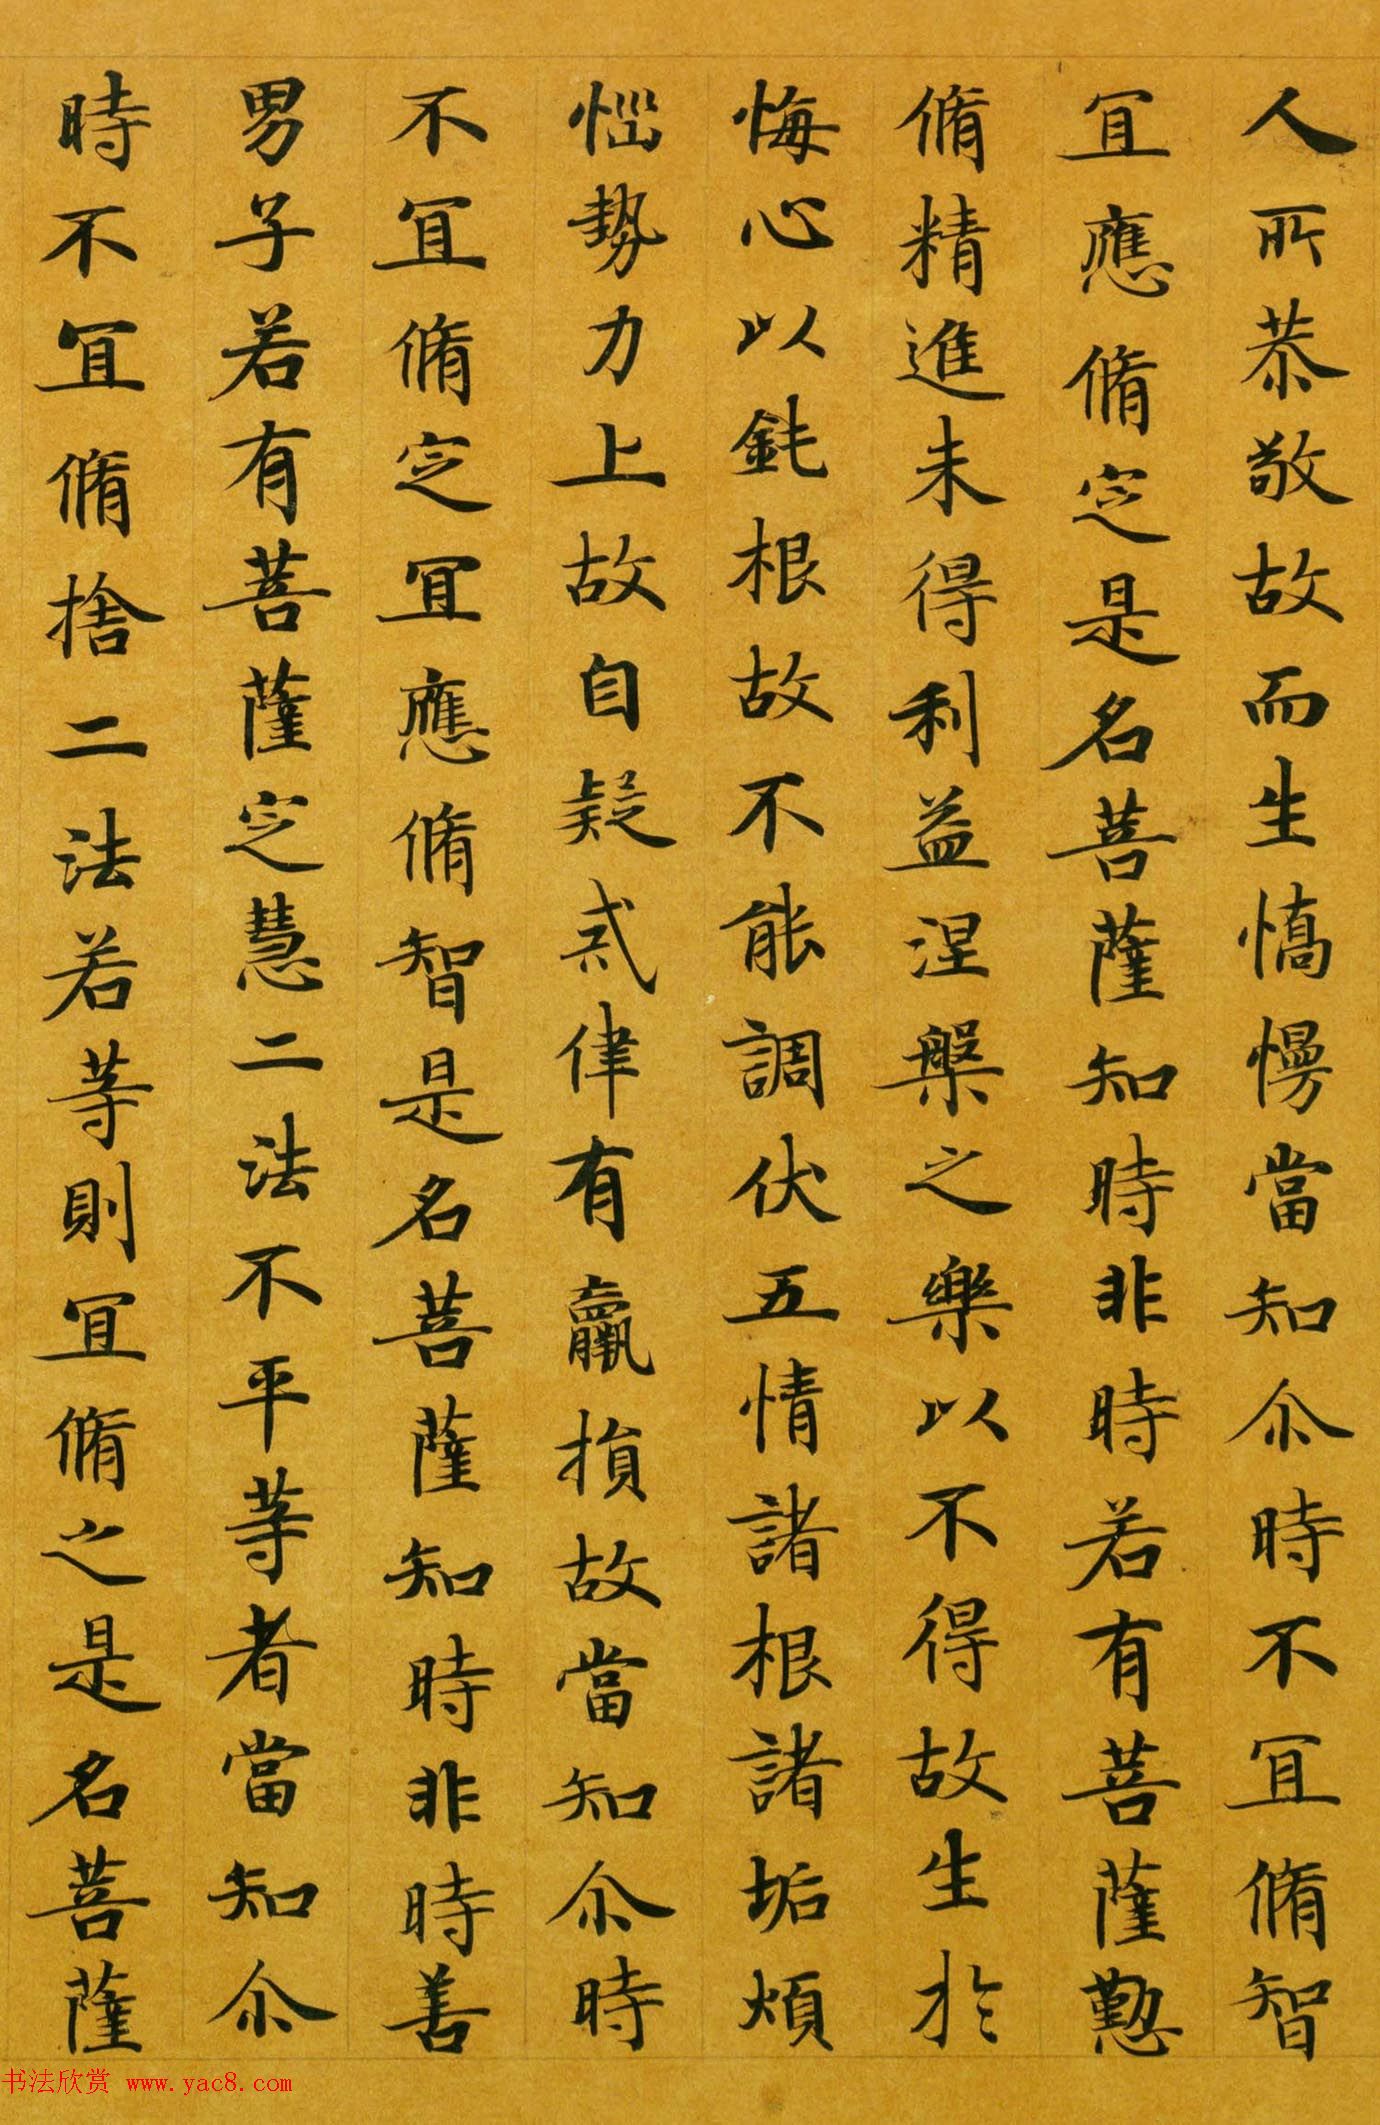 人所恭敬故而生憍慢當知尒時不冝脩智
冝應脩定是名菩薩知時非時若有菩薩懃
脩精進未得利益涅槃之樂以不得故生於
悔心以鈍根故不能調伏五情諸根諸垢煩
惱勢力上故自疑戒律有羸損故當知尒時
不冝脩定冝應脩智是名菩薩知時非時善
男子若有菩薩定慧二法不平等者當知尒
時不冝脩捨二法若等則冝脩之是名菩薩
书法欣赏 www.yac8.com